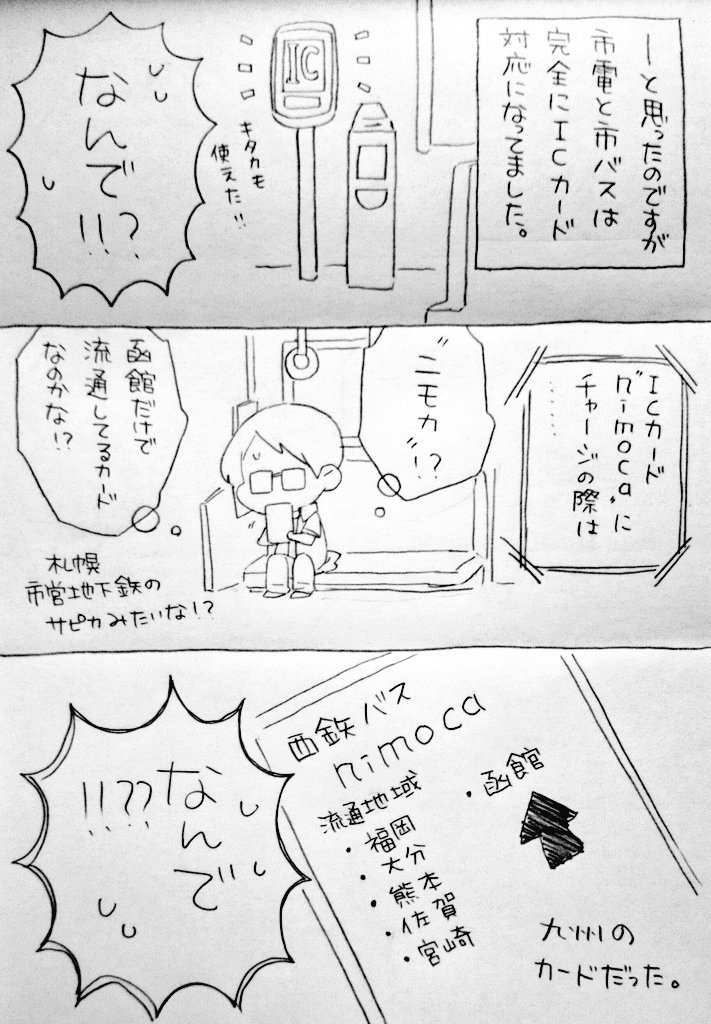 ーと思ったのですが
市電と市バスは
完全にICカード
対応になってました。
IC
キタカも
使えた!!
なんで
!!?
ICカード
"nimoca"に
チャージの際は
……
"ニモカ"!?
函館だけで
流通してるカード
なのかな!?
札幌
市営地下鉄の
サピカみたいな!?
西鉄バス
nimoca
流通地域
・福岡
・大分
・熊本
・佐賀
・宮崎
・函館
九州の
カードだった。
なんで
!!??